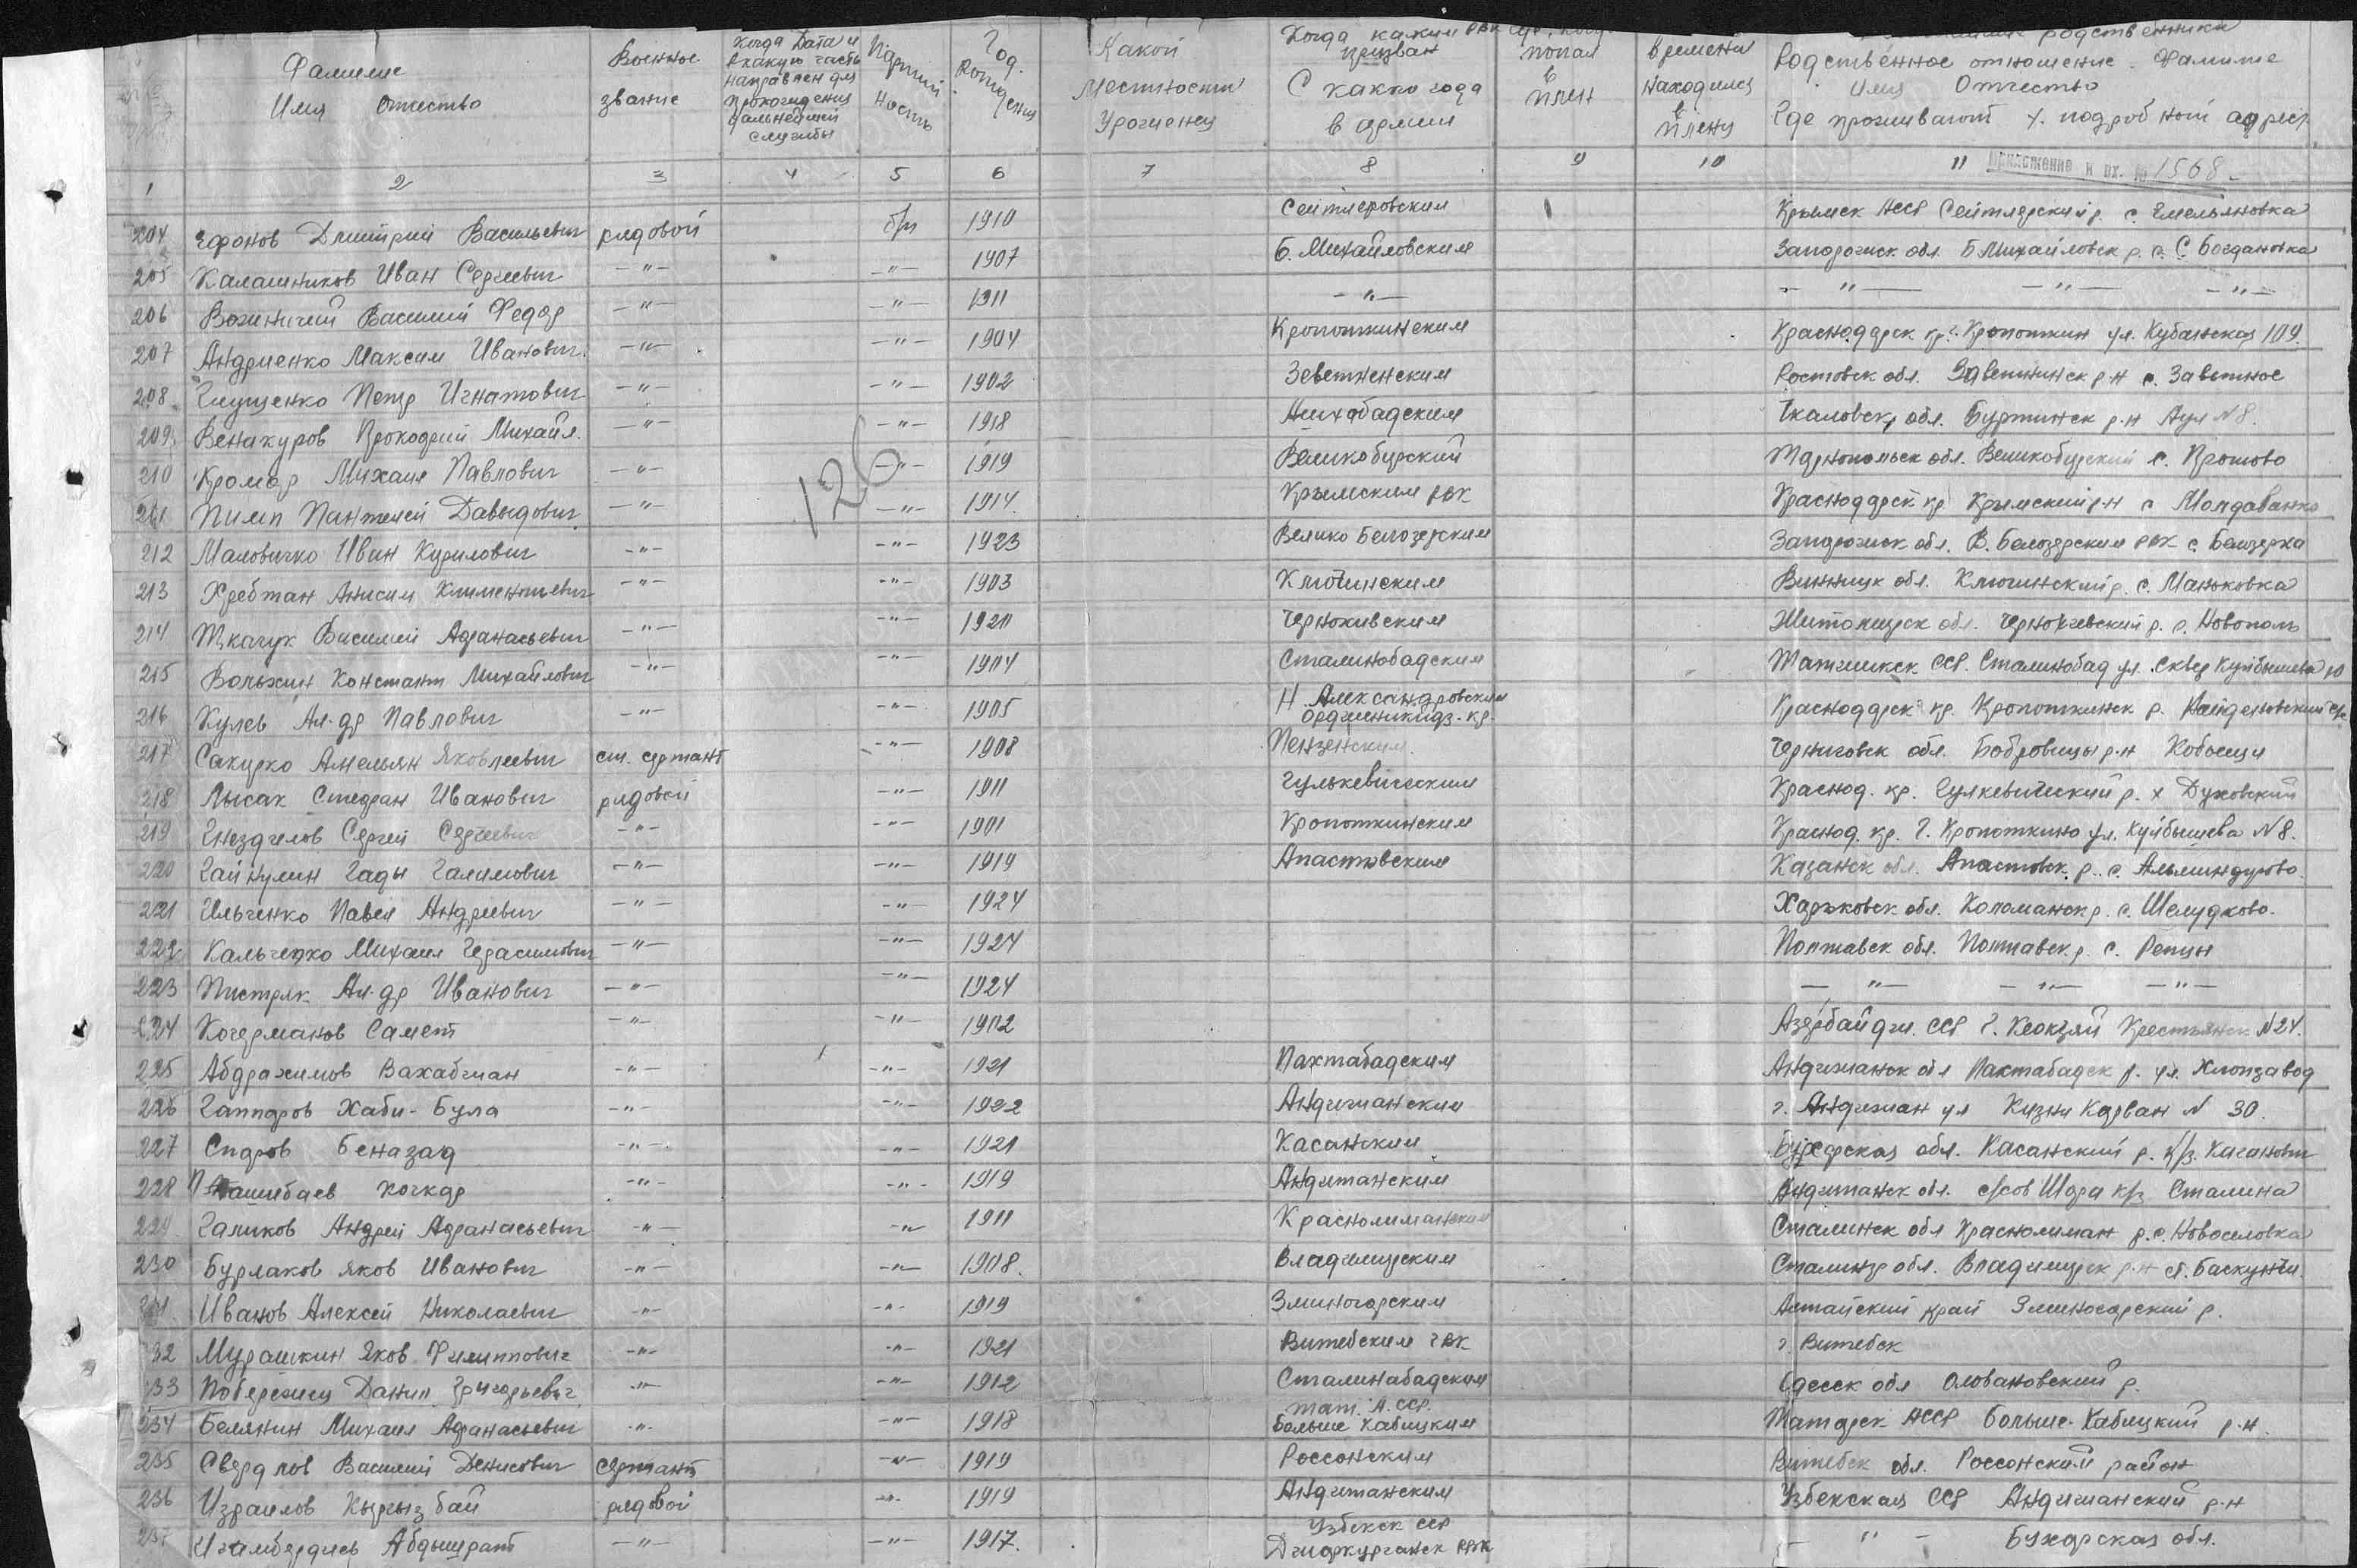 Фамилие
Имя Отчество
Военное звание
Когда Дата и в какую часть направлен для прохождения дальнейшей службы
Партийность
Год Рождения
Какой местности Урогиенец
Когда каким РВК призван С какго года в армии
попал в плен
времени находился в плену
родственники
Родственное отношение. Фамилие
Имя Отчество
Где проживают у. подробный адрес
1 2 3 4 5 6 7 8 9 10 11 Приложение к вх. № 1568
204 Ефонов Дмитрий Васильевич рядовой б/п 1910 Сейтлеровским Крымск АССР Сейтлерский р. с. Емельяновка
205 Калашников Иван Сергеевич -"- -"- 1907 Б. Михайловским Запорожск обл. Б Михайловск р. с. Богдановка
206 Василий Федор -"- -"- 1911 -"- -"- -"- -"-
207 Андриенко Максим Иванович -"- -"- 1904 Кропоткинским Краснодарск кр. г. Кропоткин ул. Кубанская 109.
208 Глущенко Петр Игнатович -"- -"- 1902 Зеветненским Ростовск обл. Заветнинск р-н с. Заветное
209 Венакуров Прокофий Михайл. -"- -"- 1918 Чкаловск обл. Буртинск р-н Аул N 8.
210 Кромар Михаил Павлович -"- -"- 1919 Великобурский Тарнопольск обл. Великобурский с.
211 Пилип Пантелей Давыдович -"- -"- 1914 Крымским РВК Краснодарск кр Крымский р-н с Молдаванка
212 Маловичко Иван Курилович -"- -"- 1923 Велико Белозерским Запорожск обл. В. Белозерским РВК с. Белозерка
213 Хребтан Анисим Климентьевич -"- -"- 1903 Ключинским Винницк обл. Ключинский р. с. Маньковка
214 Ткачук Василий Афанасьевич -"- -"- 1921 Чернохивским Житомирск обл. р. с. Новополь
215 Вольхин Констант Михайлович -"- -"- 1904 Сталинобадским Таджикск ССР. Сталинобад ул. Сквер Куйбышева 10
216 Кулев Ал-др Павлович -"- -"- 1905 Н Александровским Орджиникидз. кр. Краснодарск кр. Кропоткинск р.
217 Сакурко Амельян Яковлевич ст. сержант -"- 1908 Пензенским. Черниговск обл. Бобровицы р-н Кобыщи
218 Лысак Стефан Иванович рядовой -"- 1911 Гулькевическим Краснод. кр. Гулкевический р. х Духовский
219 Гнездилов Сергей Сергеевич -"- -"- 1901 Кропоткинским Краснод. кр. г. Кропоткино ул. Куйбышева N 8.
220 Гайнулин Гады Галимович -"- -"- 1919 Апастовским Казанск обл. Апастовск. р. с.
221 Ильченко Павел Андреевич -"- -"- 1924 Харьковск обл. Коломакск р. с. Шелудково.
222 Кальченко Михаил Герасимович -"- -"- 1924 Полтавск обл. Полтавск р. с. Репцы
223 Пистряк Ал-др Иванович -"- -"- 1924 -"- -"- -"-
224 Кочерманов Самет -"- -"- 1902 Азербайдж. ССР г. Крестьянск N 24.
225 Абдрахимов Вахабжан -"- -"- 1921 Пахтабадским Андижанск обл Пахтабадск р. ул. Хлопзавод
226 Гаппаров Хаби-Була -"- -"- 1922 Андижанским г. Андижан ул Кизил Карван N 30.
227 Сидров Беназад -"- -"- 1921 Касанским Бухарская обл. Касанский р. к/з. Каганович
228 Пашибаев Кочкар -"- -"- 1919 Андижанским Андижанск обл. с/сов Шора к/з Сталина
229 Галиков Андрей Афанасьевич -"- -"- 1911 Краснолиманским Сталинск обл Краснолиман р. с. Новоселовка
230 Бурлаков Яков Иванович -"- -"- 1908. Владимирским Сталингр обл. Владимирск р-н ст. Баскунчи.
231 Иванов Алексей Николаевич -"- -"- 1919 Змииногорским Алтайский край Змииногорский р.
232 Мурашкин Яков Филиппович -"- -"- 1921 Витебским ГВК г. Витебск
233 Побережец Данил Григорьевич -"- -"- 1912 Сталинабадским Одесск обл Оловановский р.
234 Белянин Михаил Афанасьевич -"- -"- 1918 Тат. А. ССР. Больше Кабицким Татарск АССР Больше-Кабицкий р-н.
235 Свердлов Василий Денисович сержант -"- 1919 Россонским Витебск обл. Россонский район
236 Израилов Кыргызбай рядовой -"- 1919 Андижанским Узбекская ССР Андижанский р-н
237 Абдышрап -"- -"- 1917. Узбекск ССР Джаркурганск РВК -"- Бухарская обл.
126